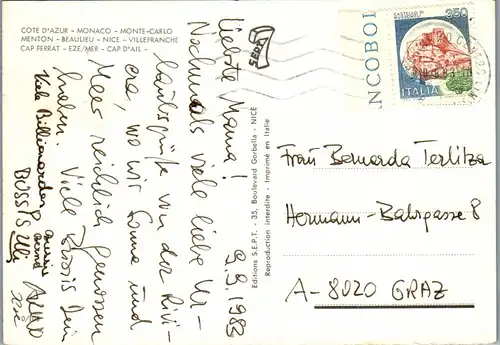 COTE D'AZUR - MONACO - MONTE-CARLO
MENTON - BEAULIEU - NICE - VILLEFRANCHE
CAP FERRAT - EZE/MER - CAP D'AIL -
SEPT
9.9.1983
Liebste Mama!
Nochmals viele liebe Ur-
laubsgrüße von der Rivi-
era, wo wir Sonne und
Meer reichlich genossen
haben. Viele Bussis Dein
Viele
BUSSIS
Editions S.E.P.T. - 35, Boulevard Gorbella - NICE
Reproduction interdite - Imprimé en Italie
NCOBOL
350
ITALIA
Frau Bernarda Terlitza
Hermann-Bahrgasse 8
A-8020 GRAZ